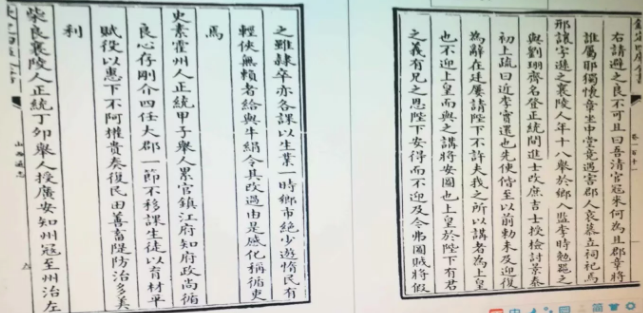 之雖隸卒亦各課以生業一時鄉市絶少遊惰民有
輕侠無賴者給與牛絹令其改過由是感化稱循吏
焉
史素霍州人正統甲子舉人累官鎮江府知府政尚循
良心存剛介四任大郡一節不移課生徒以育材平
賦役以惠下不阿權貴奏復民田善畜堤防治多美
利
柴良襄陵人正統丁卯舉人授廣安知州冦至州治左
山西通志
卷一百十一
右請避之良不可且曰吾清官冦来何為且郡章將
誰屬耶獨懷章坐中堂竟遇害郡人哀慕立祠祀焉
邢讓字遜之襄陵人年十八舉於鄉入監李時勉器之
與劉珝齊名登正統間進士改庶吉士授檢討景泰
初上疏曰近李實還也先使偕至以前勅未及迎復
為辭在廷屡請陛下不許夫我之所以講者為上皇
也不迎上皇而與之講將安圖也上皇於陛下有君
之義有兄之恩陛下安得而不迎及今弗圖賊將假